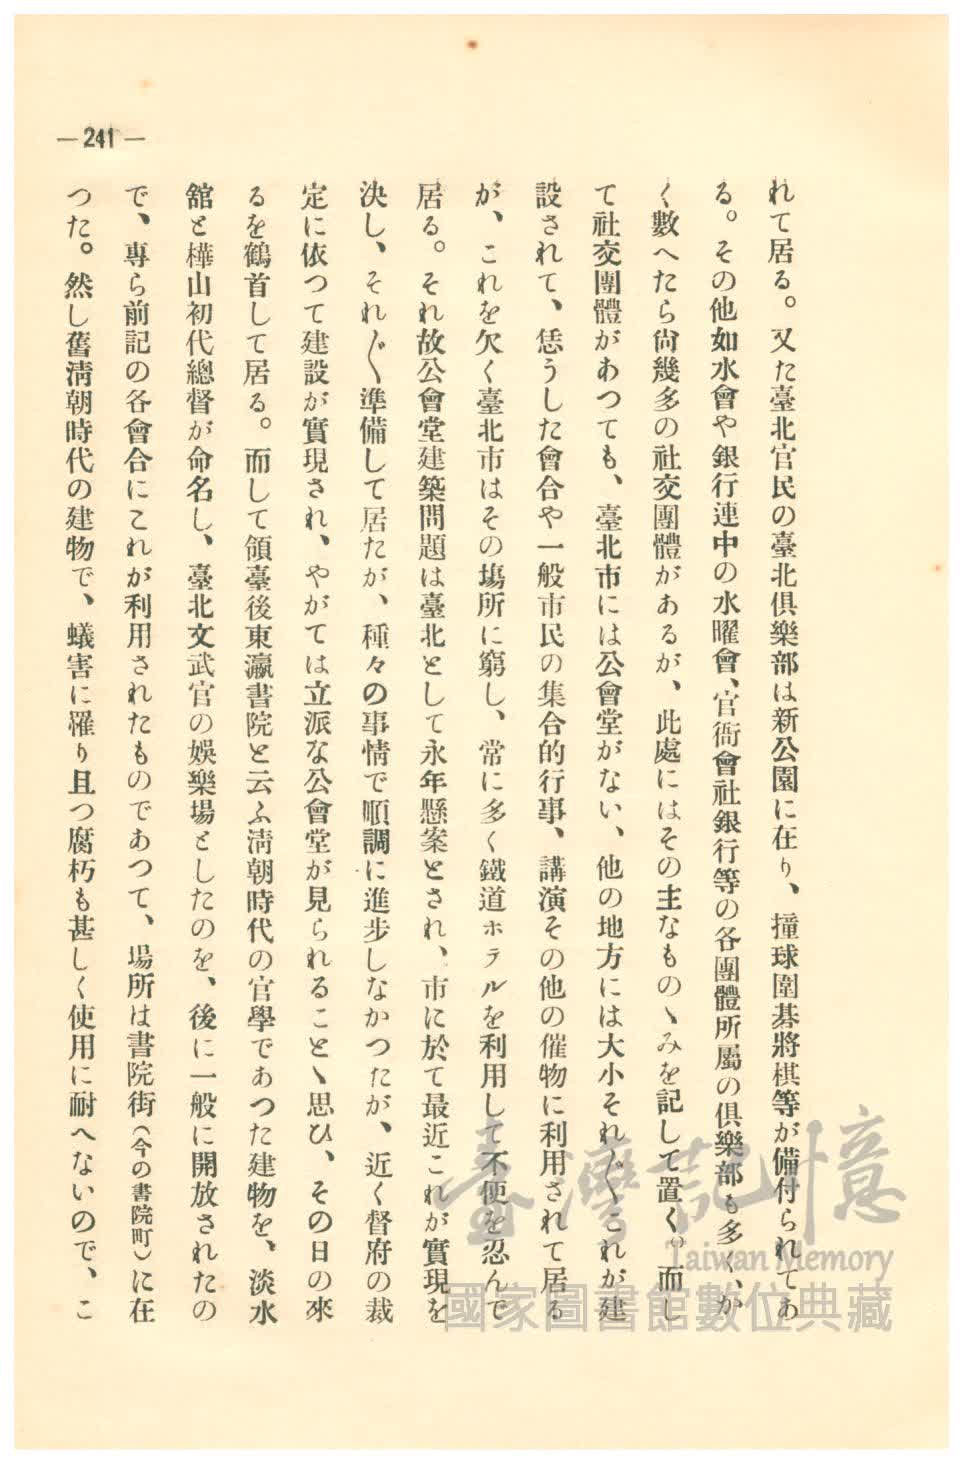 —241—
れて居る。又た臺北官民の臺北俱樂部は新公園に在り、撞球圍碁將棋等が備付られてあ
る。その他如水會や銀行連中の水曜會、官衙會社銀行等の各團體所屬の俱樂部も多く、か
く數へたら尙幾多の社交團體があるが、此處にはその主なものゝみを記して置く。而し
て社交團體があつても、臺北市には公會堂がない、他の地方には大小それ〴〵これが建
設されて、恁うした會合や一般市民の集合的行事、講演その他の催物に利用されて居る
が、これを欠く臺北市はその場所に窮し、常に多く鐵道ホテルを利用して不便を忍んで
居る。それ故公會堂建築問題は臺北として永年懸案とされ、市に於て最近これが實現を
決し、それ〴〵準備して居たが、種々の事情で順調に進步しなかつたが、近く督府の裁
定に依つて建設が實現され、やがては立派な公會堂が見られることゝ思ひ、その日の來
るを鶴首して居る。而して領臺後東瀛書院と云ふ淸朝時代の官學であつた建物を、淡水
舘と樺山初代總督が命名し、臺北文武官の娛樂場としたのを、後に一般に開放されたの
で、專ら前記の各會合にこれが利用されたものであつて、場所は書院街(今の書院町)に在
つた。然し舊淸朝時代の建物で、蟻害に罹り且つ腐朽も甚しく使用に耐へないので、こ
臺灣記憶
Taiwan Memory
國家圖書館數位典藏